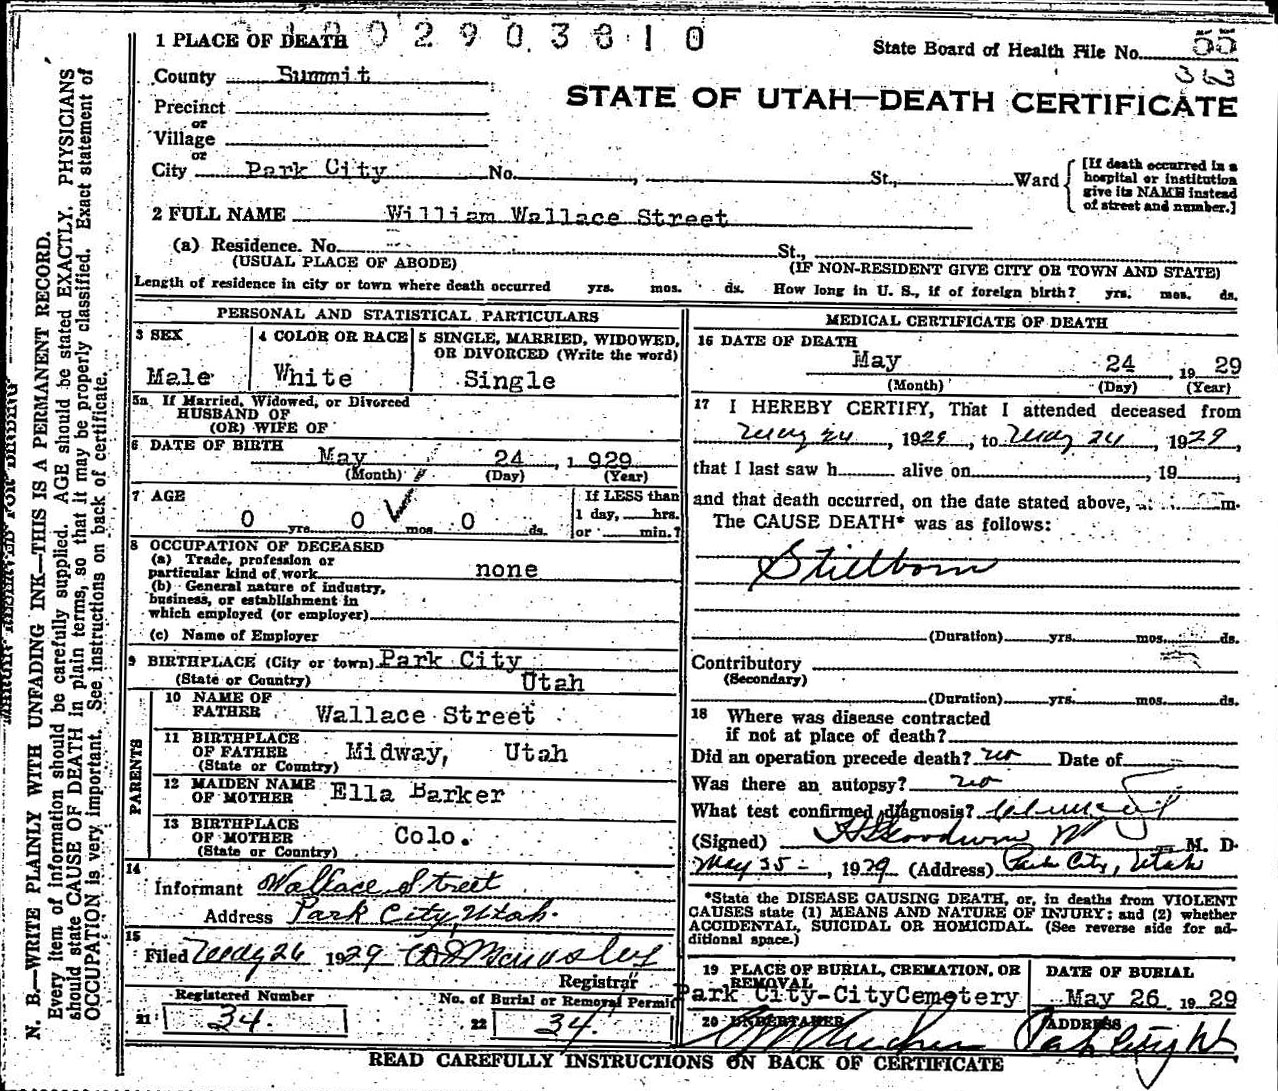 1 PLACE OF DEATH 0 2 9 0 3 6 1 0
State Board of Health File No. 55
County Summit
32
STATE OF UTAH—DEATH CERTIFICATE
Precinct
or
Village
or
City Park City No. , St., Ward
[If death occurred in a
hospital or institution
give its NAME instead
of street and number.]
2 FULL NAME William Wallace Street
(a) Residence. No. St.,
(USUAL PLACE OF ABODE) (IF NON-RESIDENT GIVE CITY OR TOWN AND STATE)
Length of residence in city or town where death occurred yrs. mos. ds. How long in U. S., if of foreign birth? yrs. mos. ds.
PERSONAL AND STATISTICAL PARTICULARS
3 SEX
Male
4 COLOR OR RACE
White
5 SINGLE, MARRIED, WIDOWED,
OR DIVORCED (Write the word)
Single
5a If Married, Widowed, or Divorced
HUSBAND OF
(OR) WIFE OF
6 DATE OF BIRTH
May 24, 1929
(Month) (Day) (Year)
7 AGE
0 yrs. 0 mos. 0 ds.
If LESS than
1 day, hrs.
or min.?
8 OCCUPATION OF DECEASED
(a) Trade, profession or
particular kind of work none
(b) General nature of industry,
business, or establishment in
which employed (or employer)
(c) Name of Employer
9 BIRTHPLACE (City or town) Park City
(State or Country) Utah
PARENTS
10 NAME OF
FATHER Wallace Street
11 BIRTHPLACE
OF FATHER Midway, Utah
(State or Country)
12 MAIDEN NAME
OF MOTHER Ella Barker
13 BIRTHPLACE
OF MOTHER Colo.
(State or Country)
14
Informant Wallace Street
Address Park City, Utah.
15
Filed May 26 1929
Registrar
Registered Number
21 34
No. of Burial or Removal Permit
22 34
MEDICAL CERTIFICATE OF DEATH
16 DATE OF DEATH
May 24, 1929
(Month) (Day) (Year)
17 I HEREBY CERTIFY, That I attended deceased from
May 24, 1929, to May 24, 1929,
that I last saw h alive on , 19 ,
and that death occurred, on the date stated above, at m.
The CAUSE DEATH* was as follows:
Stillborn
(Duration) yrs. mos. ds.
Contributory
(Secondary)
(Duration) yrs. mos. ds.
18 Where was disease contracted
if not at place of death?
Did an operation precede death? no Date of
Was there an autopsy? no
What test confirmed diagnosis?
(Signed) M. D.
May 25-, 1929 (Address) Park City, Utah
*State the DISEASE CAUSING DEATH, or, in deaths from VIOLENT
CAUSES state (1) MEANS AND NATURE OF INJURY; and (2) whether
ACCIDENTAL, SUICIDAL OR HOMICIDAL. (See reverse side for ad-
ditional space.)
19 PLACE OF BURIAL, CREMATION, OR
REMOVAL
Park City-CityCemetery
DATE OF BURIAL
May 26 1929
20 UNDERTAKER
ADDRESS
READ CAREFULLY INSTRUCTIONS ON BACK OF CERTIFICATE
N. B.—WRITE PLAINLY WITH UNFADING INK—THIS IS A PERMANENT RECORD.
Every item of information should be carefully supplied. AGE should be stated EXACTLY. PHYSICIANS
should state CAUSE OF DEATH in plain terms, so that it may be properly classified. Exact statement of
OCCUPATION is very important. See instructions on back of certificate.